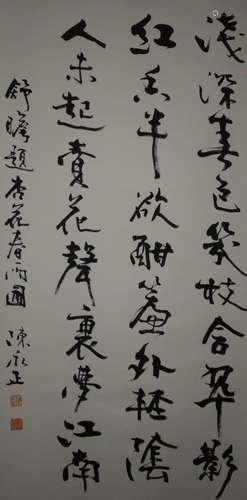 浅深春色幾枝含翠影
紅香半欲酣簾外輕陰
人未起賣花聲裏夢江南
舒瞻題杏花春雨圖 陳永正